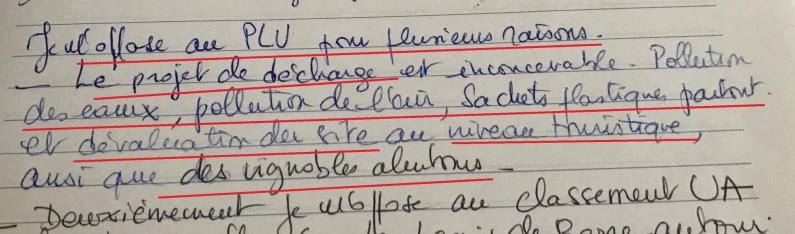 Je m'oppose au PLU pour plusieurs raisons.
- Le projet de décharge est inconcevable. Pollution
des eaux, pollution de l'air, Sachets plastiques partout.
et dévaluation du site au niveau thuristique,
ausi que des vignobles alentours -
- Deuxièmement Je m'oppose au classement UA
de autour